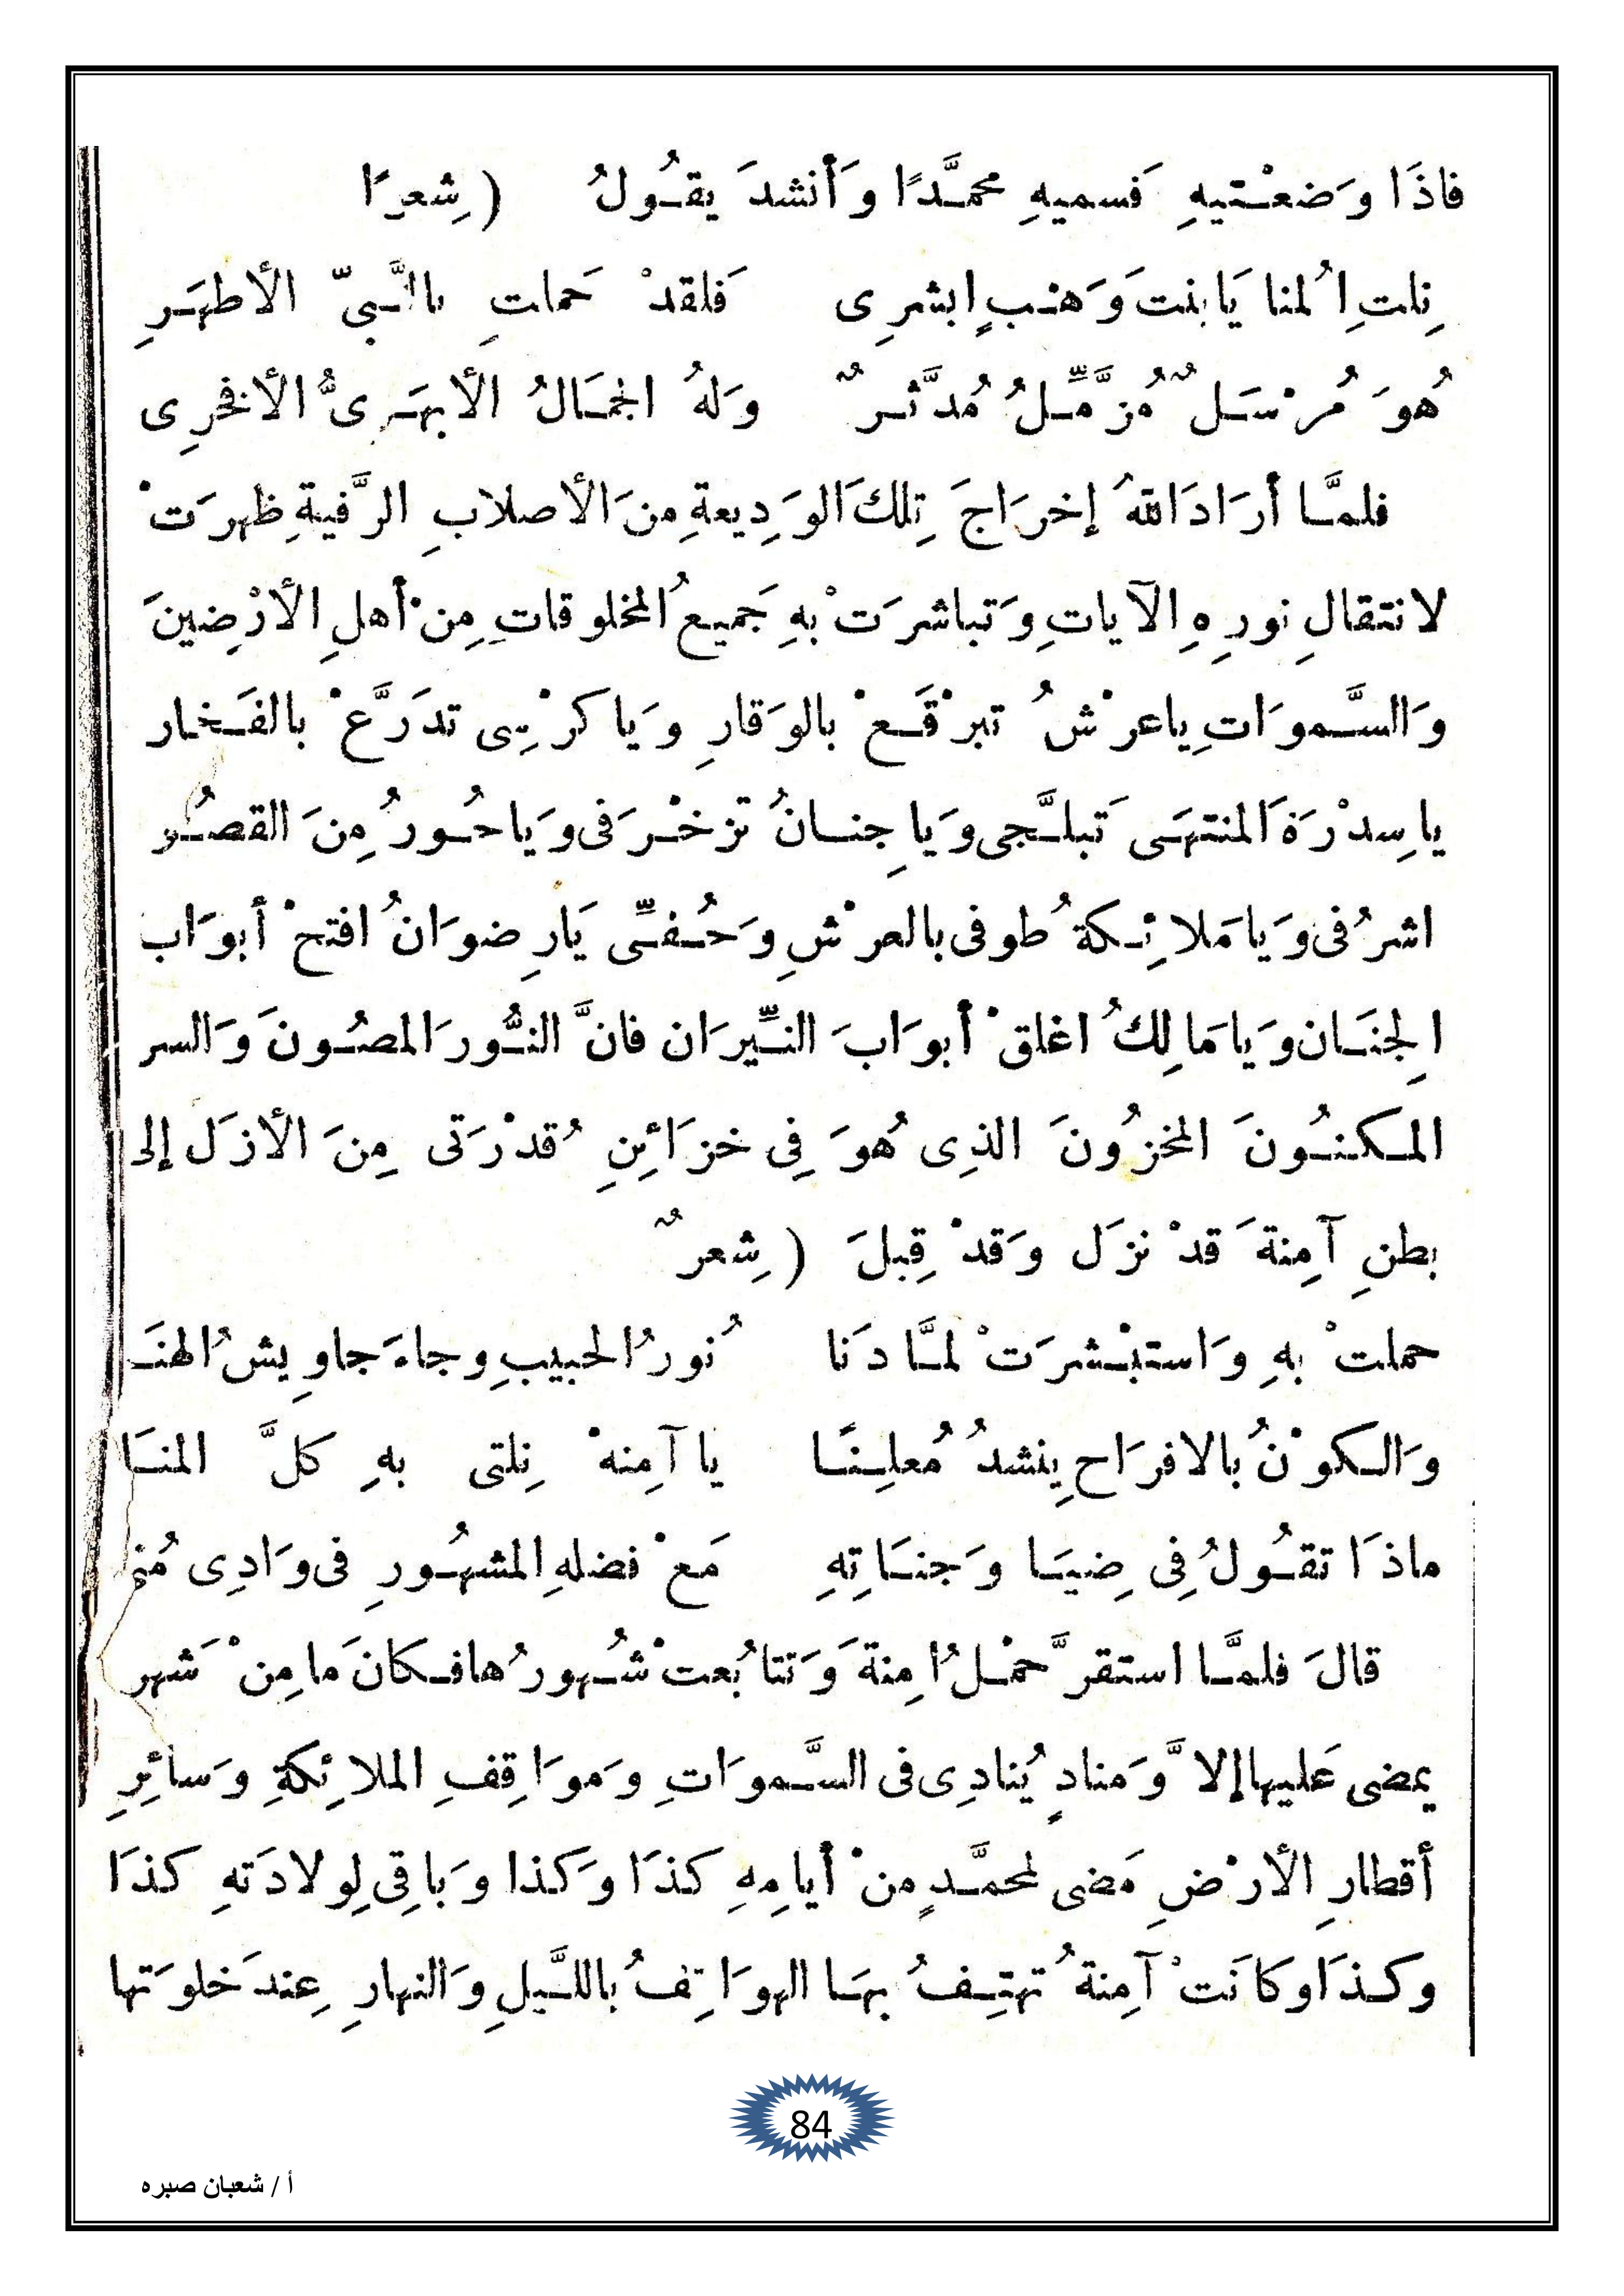 فاذَا وَضعْتيهِ فَسميهِ محمَّدًا وَأنشدَ يقُولُ ( شِعرًا
نِلتِ اُلمنا يَابنت وَهبٍ ابشرِى فَلقدْ حَملتِ بالنَّبيّ الأطهَرِ
هُوَ مُرْسَلٌ مُزَّمِّلُ مُدَّثرٌ وَلهُ الجمَالُ الأبهَرِىُّ الأنخرِى
فلمَّا أرَادَ اللهُ إخرَاجَ تِلكَ الوَدِيعةِ مِنَ الأصلابِ الرَّفيةِ ظهرَتْ
لانتقالِ نورِهِ الآياتِ وَتباشرَتْ بهِ جَميعُ المخلوقاتِ مِنْ أهلِ الأرْضِينَ
وَالسَّموَاتِ ياعرْشُ تبرْقَعْ بالوَقارِ وَياكرْسِى تدَرَّعْ بالفَخار
ياسِدْرَةَ المنتهَى تَبلَّجى وَياجِنانُ تزخْرَفى وَياحُورُ مِنَ القصُور
اشرُفى وَيامَلائِكةُ طوفى بالعرْشِ وَحُفِّى يَارِضوَانُ افتحْ أبوَاب
الجِنَان وَيامَالِكُ اغلقْ أبوَابَ النِّيرَان فانَّ النُّورَ المصُونَ وَالسر
المكنُونَ المخزُونَ الذِى هُوَ فِى خزَائِنِ قُدْرَتى مِنَ الأزَل إلى
بطنِ آمِنةَ قدْ نزَل وَقدْ قِبلَ ( شِعرٌ
حملتْ بهِ وَاستبْشرَتْ لمَّا دَنا نُورُ الحبيبِ وجاءَ جاوِيشُ الهنَا
وَالكوْنُ بالافرَاحِ ينشدُ مُعلِنًا يا آمِنهْ نِلتى بهِ كلَّ المنَا
ماذَا تقُولُ فِى ضِيَا وَجنَاتِهِ مَعْ فضلهِ المشهُورِ فى وَادِى مُنى
قالَ فلمَّا استقرَّ حمْلُ امِنةَ وَتتابُعتْ شُهورُها فكانَ مامِنْ شَهر
يمضى عَليها إلاَّ وَمنادٍ يُنادِى فى السَّموَاتِ وَموَاقِفِ الملائِكةِ وَسائِرِ
أقطارِ الأرْضِ مَضى لمحمَّدٍ منْ أيامِهِ كذَا وَكذا وَباقِى لِولادَتهِ كذَا
وكذَا وكانَتْ آمِنةُ تهتِفُ بهَا الهوَاتِفُ باللَّيلِ وَالنهارِ عِندَ خلوَتها
84
أ / شعبان صبره